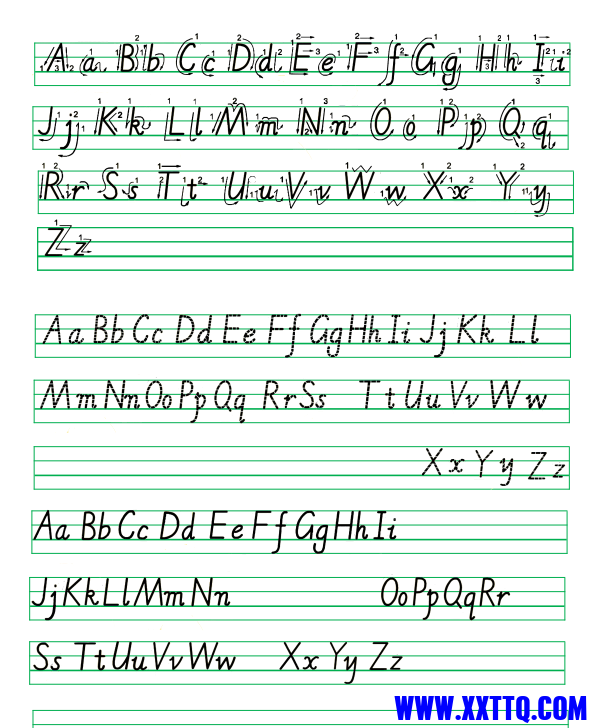 Aa Bb Cc Dd Ee Ff Gg Hh Ii
Jj Kk Ll Mm Nn Oo Pp Qq
Rr Ss Tt Uu Vv Ww Xx Yy
Zz
Aa Bb Cc Dd Ee Ff Gg Hh Ii Jj Kk Ll
Mm Nn Oo Pp Qq Rr Ss Tt Uu Vv Ww
Xx Yy Zz
Aa Bb Cc Dd Ee Ff Gg Hh Ii
Jj Kk Ll Mm Nn Oo Pp Qq Rr
Ss Tt Uu Vv Ww Xx Yy Zz
WWW.XXTTQ.COM